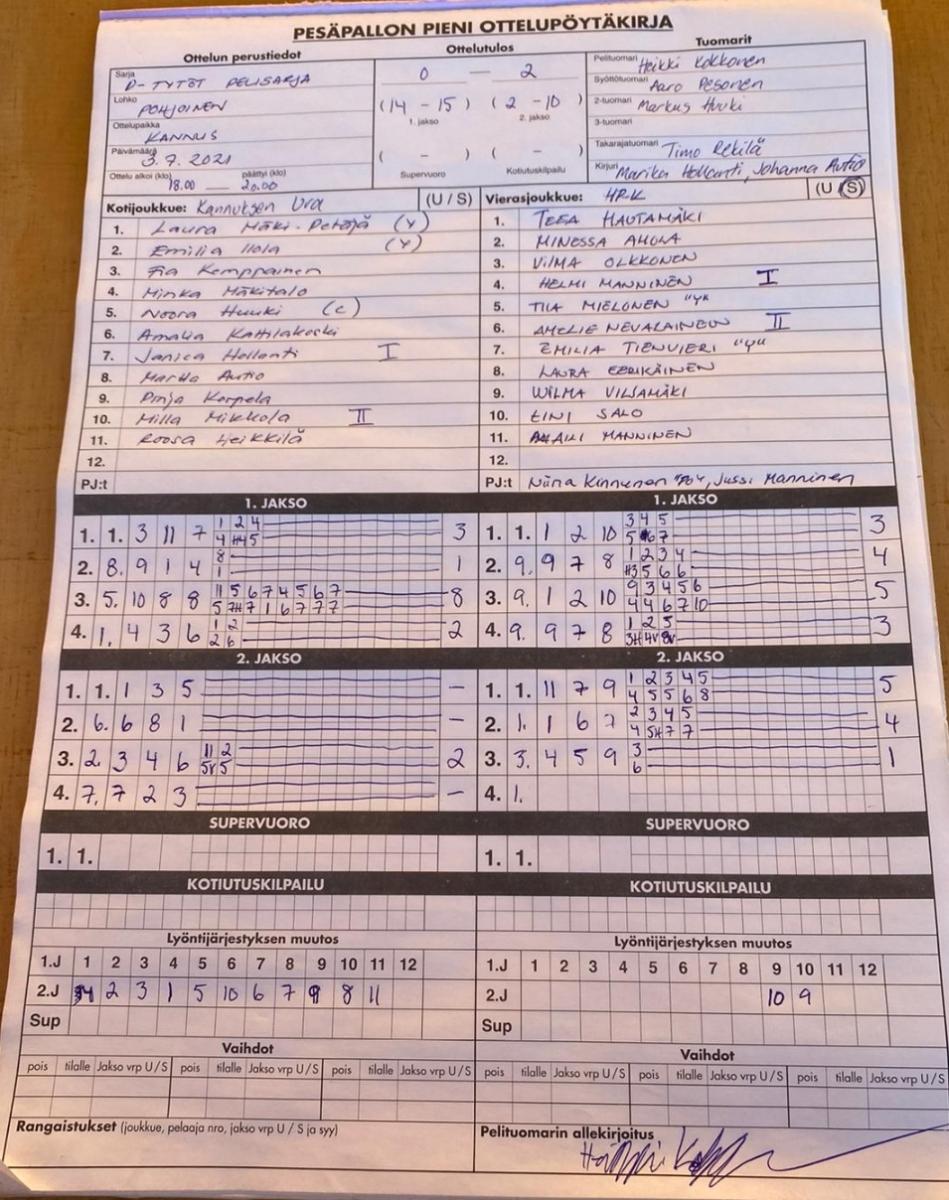 PESÄPALLON PIENI OTTELUPÖYTÄKIRJA
Ottelun perustiedot
Sarja D-TYTÖT PELISARJA
Lohko POHJOINEN
Ottelupaikka KANNUS
Päivämäärä 3.7.2021
Ottelu alkoi (klo) päättyi (klo)
18.00 — 20.00
Ottelutulos
0 — 2
(14 - 15) (2 - 10)
1. jakso 2. jakso
( - ) ( - )
Supervuoro Kotiutuskilpailu
Tuomarit
Pelituomari Heikki Kokkonen
Syöttötuomari Aaro Pesonen
2-tuomari Markus Huuki
3-tuomari
Takarajatuomari Timo Rekilä
Kirjuri Marika Hollanti, Johanna Autio
Kotijoukkue: Kannuksen Ura (U / S)
1. Laura Mäki-Petäjä (Y)
2. Emilia Ilola (Y)
3. Fia Kemppainen
4. Minka Mäkitalo
5. Noora Huuki (c)
6. Amalia Kattilakoski
7. Janica Hollanti I
8. Martta Autio
9. Pinja Korpela
10. Milla Mikkola II
11. Roosa Heikkilä
12.
PJ:t
Vierasjoukkue: HP.K (U / S)
1. TEEA HAUTAMÄKI
2. MINESSA AHOLA
3. VILMA OLKKONEN
4. HELMI MANNINEN I
5. TIIA MIELONEN "Y"
6. AMELIE NEVALAINEN II
7. EMILIA TIENVIERI "Y"
8. LAURA EERIKÄINEN
9. WILMA VILJAMÄKI
10. EINI SALO
11. MANNINEN
12.
PJ:t Niina Kinnunen "PJ", Jussi Manninen
1. JAKSO
1. 1. 3 11 7 1 2 4 3
4 4H 5
2. 8. 9 1 4 8 1
1
3. 5. 10 8 8 11 5 6 7 4 5 6 7 8
5 7H 7 1 6 7 7 7
4. 1. 4 3 6 1 2 2
2 6
2. JAKSO
1. 1. 1 3 5 –
2. 6. 6 8 1 –
3. 2. 3 4 6 11 2 2
5V 5
4. 7. 7 2 3 –
SUPERVUORO
1. 1.
KOTIUTUSKILPAILU
Lyöntijärjestyksen muutos
1.J 1 2 3 4 5 6 7 8 9 10 11 12
2.J 4 2 3 1 5 10 6 7 9 8 11
Sup
Vaihdot
pois tilalle Jakso vrp U / S pois tilalle Jakso vrp U / S pois tilalle Jakso vrp U / S
Rangaistukset (joukkue, pelaaja nro, jakso vrp U / S ja syy)
1. JAKSO
1. 1. 1 2 10 3 4 5 3
5 6 7
2. 9. 9 7 8 1 2 3 4 4
H3 5 6 6
3. 9. 1 2 10 9 3 4 5 6 5
4 4 6 7 10
4. 9. 9 7 8 1 2 5 3
3H 4V 8V
2. JAKSO
1. 1. 11 7 9 1 2 3 4 5 5
4 5 5 6 8
2. 1. 1 6 7 2 3 4 5 4
4 5H 7 7
3. 3. 4 5 9 3 1
6
4. 1.
SUPERVUORO
1. 1.
KOTIUTUSKILPAILU
Lyöntijärjestyksen muutos
1.J 1 2 3 4 5 6 7 8 9 10 11 12
2.J 10 9
Sup
Vaihdot
pois tilalle Jakso vrp U / S pois tilalle Jakso vrp U / S pois tilalle Jakso vrp U / S
Pelituomarin allekirjoitus